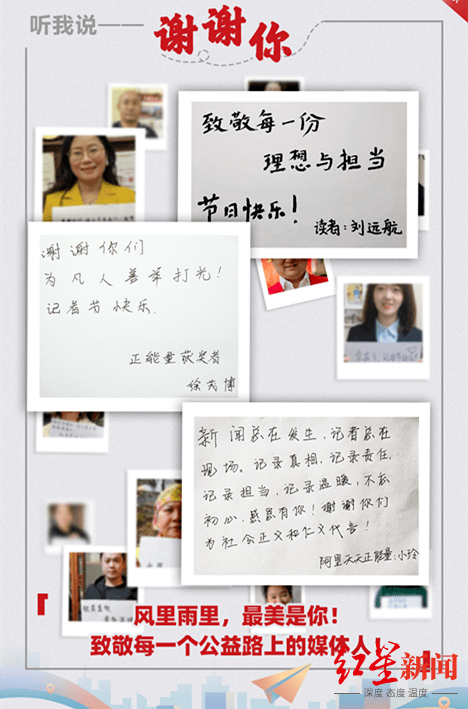 听我说——
谢谢你
致敬每一份
理想与担当
节日快乐!
读者:刘远航
谢谢你们
为凡人善举打光!
记者节快乐.
正能量获奖者
徐茂博
新闻总在发生,记者总在
现场。记录真相,记录责任,
记录担当,记录温暖,不忘
初心,感恩有你!谢谢你们
为社会正义和仁义代言!
阿里天天正能量:小玲
「风里雨里,最美是你!
致敬每一个公益路上的媒体人」
红星新闻
深度 态度 温度